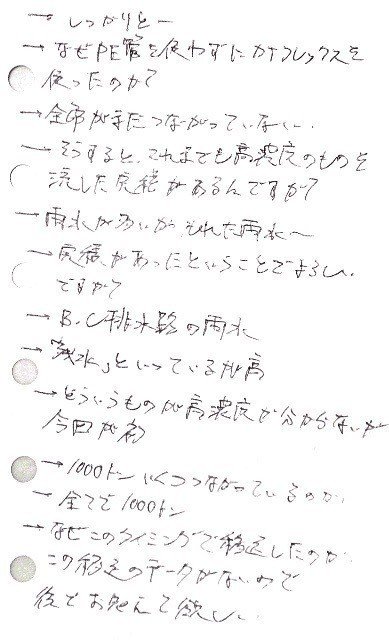 → しっかりとー
→ なぜPE管を使わずにカナフレックスを
使ったのか?
→ 全部がまだつながっていない…
→ そうすると、これまでも高濃度のものを
流した実績があるんですか?
→ 雨水が多いが、それた雨水〜
→ 実績があったということでよろしい
ですか?
→ B.C排水路の雨水
→ 「残水」といっているが高
→ どういうものが高濃度か分からないが
今回が初
→ 1000トン いくつつながっているのか。
→ 全てで1000トン
→ なぜこのタイミングで移送したのか。
この移送のデータがないので
後で教えて欲しい。